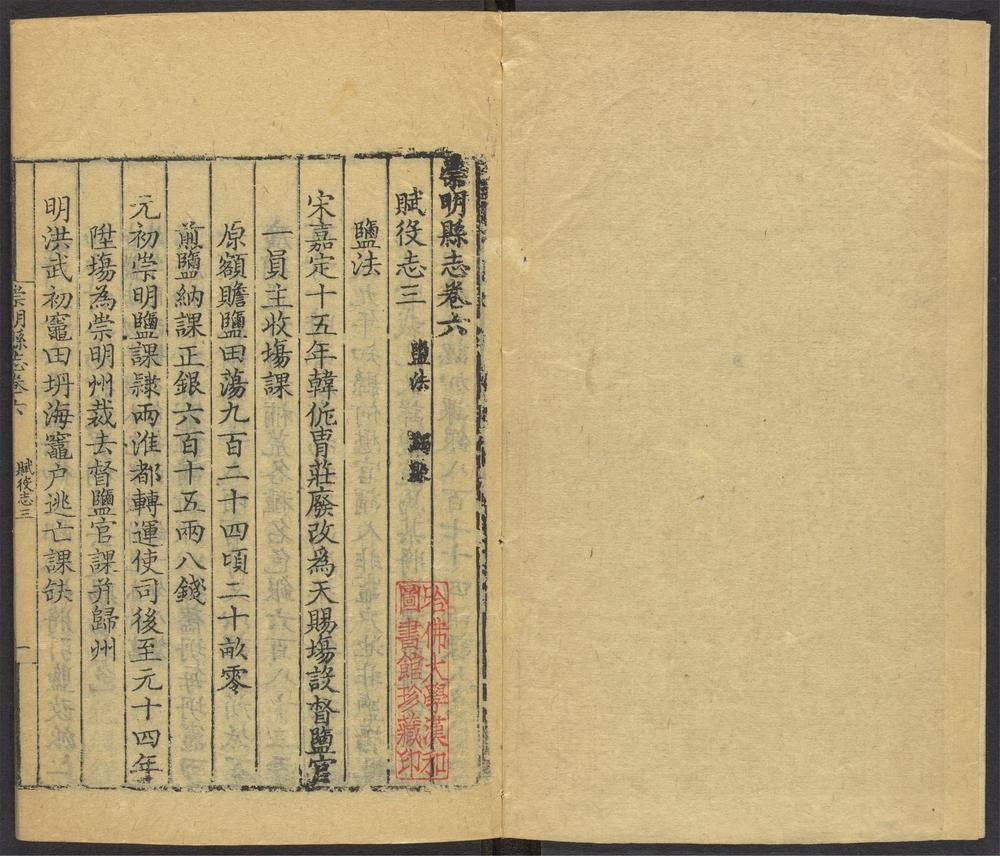 崇明縣志卷六
賦役志三 鹽法 蠲賑
鹽法
宋嘉定十五年韓侂胄莊廢改爲天賜塲設督鹽官
一員主收塲課
原額贍鹽田蕩九百二十四頃二十畝零
煎鹽納課正銀六百十五兩八錢
元初崇明鹽課隸兩淮都轉運使司後至元十四年
陞塲為崇明州裁去督鹽官課并歸州
明洪武初竈田坍海竈户逃亡課缺
崇明縣志卷六 賦役志三 一
哈佛大學漢和
圖書館珍藏印